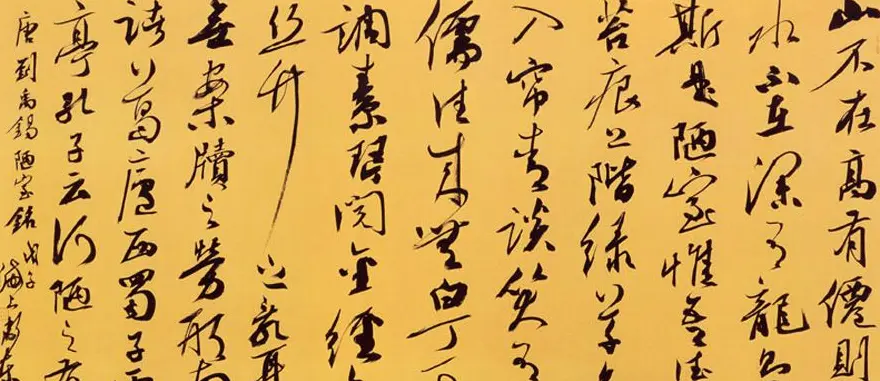 山不在高有僊則
水不在深有龍則
斯是陋室惟吾德
苔痕上階綠草色
入帘青談笑有
儒往來無白丁可
調素琴閱金經無
絲竹之亂耳
無案牘之勞形南
諸葛廬西蜀子雲
亭孔子云何陋之有
唐劉禹錫陋室銘 戊子